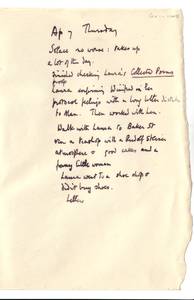 Ap 7 Thursday
Solace no worse: takes up
a lot of the day.
Finished checking Laura's Collected Poems
proof
Laura confirming Winifred on her
protocol feelings with a long letter dictated
to Alan. Then worked with her.
Walk with Laura to Baker St
a teashop with a Rudolf Steiner
atmosphere & good cakes and a
funny little woman
Laura went to a shoe shop &
didn't buy shoes.
Letters